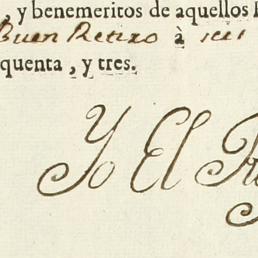 , y benemeritos de aquellos
Buen Retiro à
quenta, y tres.
Yo El